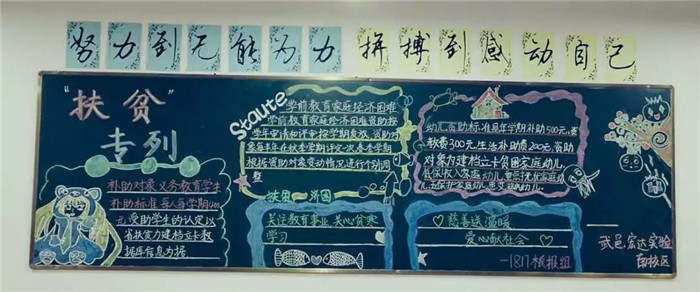 努力到无能为力 拼搏到感动自己
"扶贫"
专列
补助对象义务教育学生
补助标准每人每学期
元受助学生的认定以
省扶贫力建档立卡数
据库信息为据
Staute
学前教育家庭经济困难
学前教育家庭经济困难资助按
学年申请和评审按学期发放,资助方
案每年在秋季学期评定一次春季学期
根据资助对象变动情况进行个别调
整
扶贫 济困
关注教育事业,关心贫寒
学习
幼儿资助标准是每学期补助500元,
教费300元,生活补助费200元,资助
对象力建档立卡贫困家庭幼儿
慈善送温暖
爱心献社会
一1817板报组
武邑宏达实验
南校区